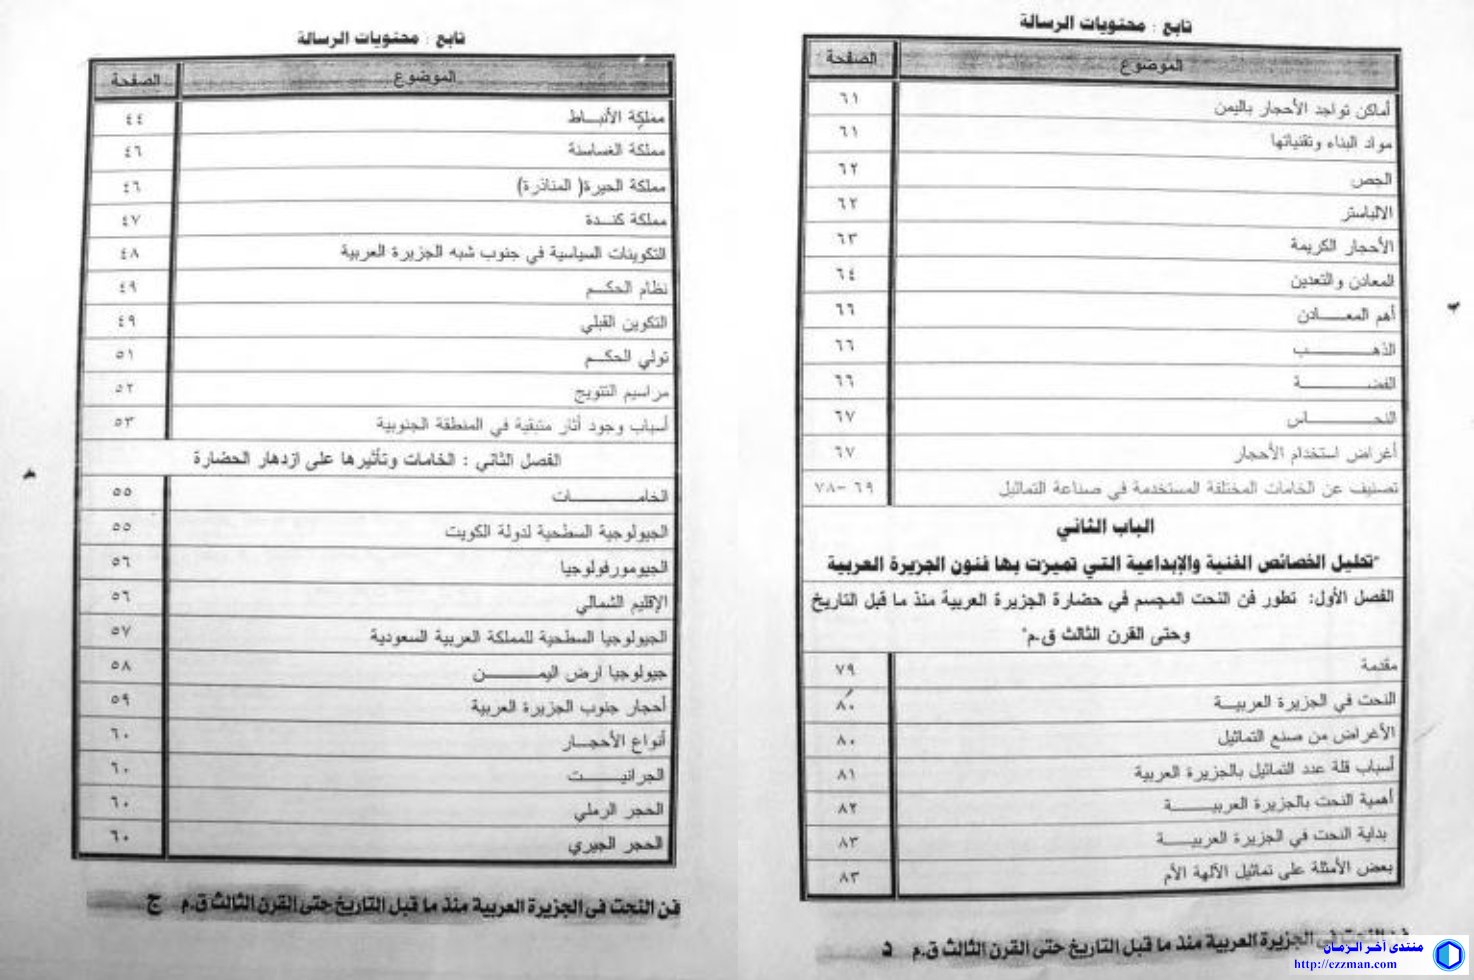 تابع : محتويات الرسالة
الموضوع الصفحة
أماكن تواجد الأحجار باليمن ٦١
مواد البناء وتقنياتها ٦١
الجص ٦٢
الالباستر ٦٢
الأحجار الكريمة ٦٣
المعادن والتعدين ٦٤
أهم المعـــادن ٦٦
الذهـــــــب ٦٦
الفضـــــــة ٦٦
النحـــــــاس ٦٧
أغراض استخدام الأحجار ٦٧
تصنيف عن الخامات المختلفة المستخدمة في صناعة التماثيل ٦٩ -٧٨
الباب الثاني
"تحليل الخصائص الفنية والإبداعية التي تميزت بها فنون الجزيرة العربية
الفصل الأول: تطور فن النحت المجسم في حضارة الجزيرة العربية منذ ما قبل التاريخ
وحتى القرن الثالث ق.م"
مقدمة ٧٩
النحت في الجزيرة العربيـــة ٨٠
الأغراض من صنع التماثيل ٨٠
أسباب قلة عدد التماثيل بالجزيرة العربية ٨١
أهمية النحت بالجزيرة العربيـــــة ٨٢
بداية النحت في الجزيرة العربيـــــة ٨٣
بعض الأمثلة على تماثيل الآلهة الأم ٨٣
فن النحت في الجزيرة العربية منذ ما قبل التاريخ حتى القرن الثالث ق.م د
تابع : محتويات الرسالة
الموضوع الصفحة
مملكة الأنبـــاط ٤٤
مملكة الغساسنة ٤٦
مملكة الحيرة( المناذرة) ٤٦
مملكة كنـــدة ٤٧
التكوينات السياسية في جنوب شبه الجزيرة العربية ٤٨
نظام الحكـــم ٤٩
التكوين القبلي ٤٩
تولي الحكـــم ٥١
مراسيم التتويج ٥٢
أسباب وجود أثار متبقية في المنطقة الجنوبية ٥٣
الفصل الثاني : الخامات وتأثيرها على ازدهار الحضارة
الخامـــــــات ٥٥
الجيولوجية السطحية لدولة الكويت ٥٥
الجيومورفولوجيا ٥٦
الإقليم الشمالي ٥٦
الجيولوجيا السطحية للمملكة العربية السعودية ٥٧
جيولوجيا ارض اليمـــــن ٥٨
أحجار جنوب الجزيرة العربية ٥٩
أنواع الأحجـــار ٦٠
الجرانيـــــت ٦٠
الحجر الرملي ٦٠
الحجر الجيري ٦٠
فن النحت في الجزيرة العربية منذ ما قبل التاريخ حتى القرن الثالث ق.م ج
منتدى آخر الزمان
http://ezzman.com